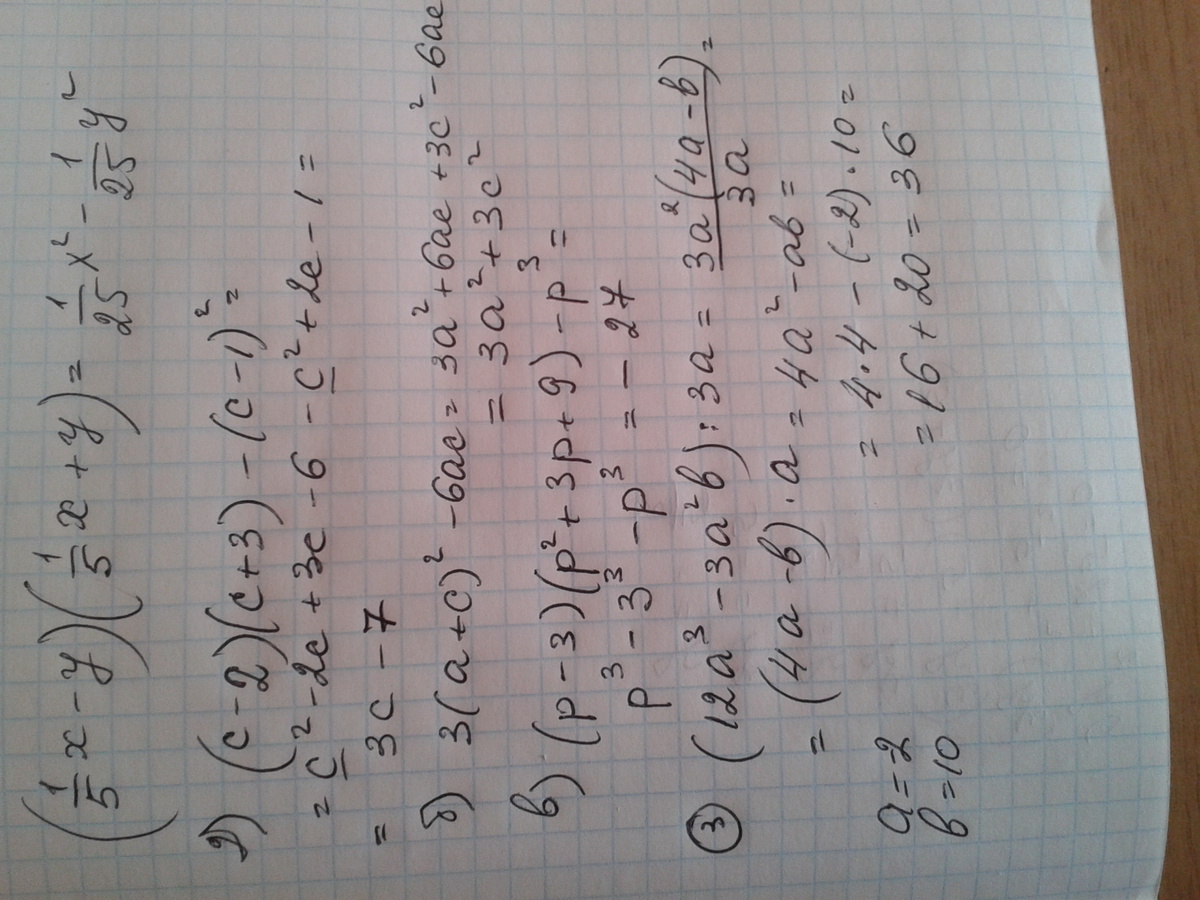 (1/5 x - y)(1/5 x + y) = 1/25 x² - 1/25 y²
2) (c - 2)(c + 3) - (c - 1)² =
= c² - 2c + 3c - 6 - c² + 2c - 1 =
= 3c - 7
б) 3(a + c)² - 6ac = 3a² + 6ac + 3c² - 6ac
= 3a² + 3c²
в) (p - 3)(p² + 3p + 9) - p³ =
p³ - 3³ - p³ = - 27
③ (12a³ - 3a²b) : 3a = 3a²(4a - b)/3a =
= (4a - b) · a = 4a² - ab =
a = -2
b = 10
= 4·4 - (-2)·10 =
= 16 + 20 = 36